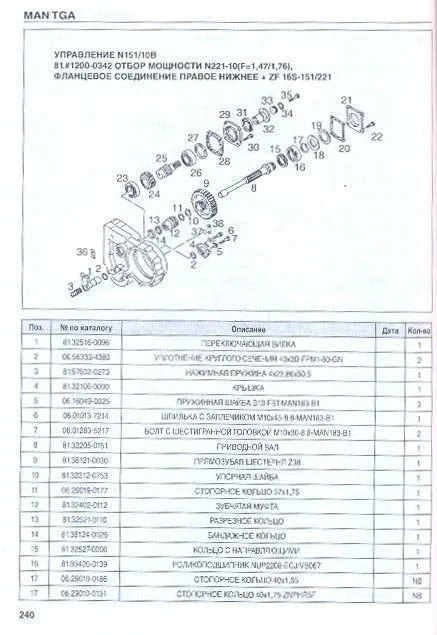 MAN TGA
УПРАВЛЕНИЕ N151/10B
81.#1200-0342 ОТБОР МОЩНОСТИ N221-10(F=1,47/1,76),
ФЛАНЦЕВОЕ СОЕДИНЕНИЕ ПРАВОЕ НИЖНЕЕ + ZF 16S-151/221
35
33
34
32
31
29
30
28
27
26
25
24
23
21
22
20
19
18
17
16
15
9
8
11
10
12
13
14
38
37
36
4
6
7
5
2
1
2
3
Поз. № по каталогу Описание Дата Кол-во
1 81.32516-0096 ПЕРЕКЛЮЧАЮЩАЯ ВИЛКА 1
2 06.56333-4380 УПЛОТНЕНИЕ КРУГЛОГО СЕЧЕНИЯ 2
3 НАЖИМНАЯ ПРУЖИНА 1
4 81.32106-0090 КРЫШКА 1
5 06.16049-0025 ПРУЖИННАЯ ШАЙБА 3
6 06.01013-7214 ШПИЛЬКА С ЗАПЛЕЧИКОМ M10x45-8.8-MAN183-B1 1
7 06.01283-5217 БОЛТ С ШЕСТИГРАННОЙ ГОЛОВКОЙ M10x30-8.8-MAN183-B1 2
8 81.32205-0151 ПРИВОДНОЙ ВАЛ 1
9 81.38121-0030 ПРЯМОЗУБАЯ ШЕСТЕРНЯ Z38 1
10 81.32312-0753 УПОРНАЯ ШАЙБА 1
11 06.29019-0177 СТОПОРНОЕ КОЛЬЦО 37x1,75 1
12 81.32402-0112 ЗУБЧАТАЯ МУФТА 1
13 РАЗРЕЗНОЕ КОЛЬЦО 1
14 81.38124-0025 БАНДАЖНОЕ КОЛЬЦО 1
15 81.32527-0006 КОЛЬЦО С НАПРАВЛЯЮЩИМИ 1
16 81.93420-0139 РОЛИКОПОДШИПНИК 1
17 06.29019-0186 СТОПОРНОЕ КОЛЬЦО NB
17 06.29010-0131 СТОПОРНОЕ КОЛЬЦО NB
240